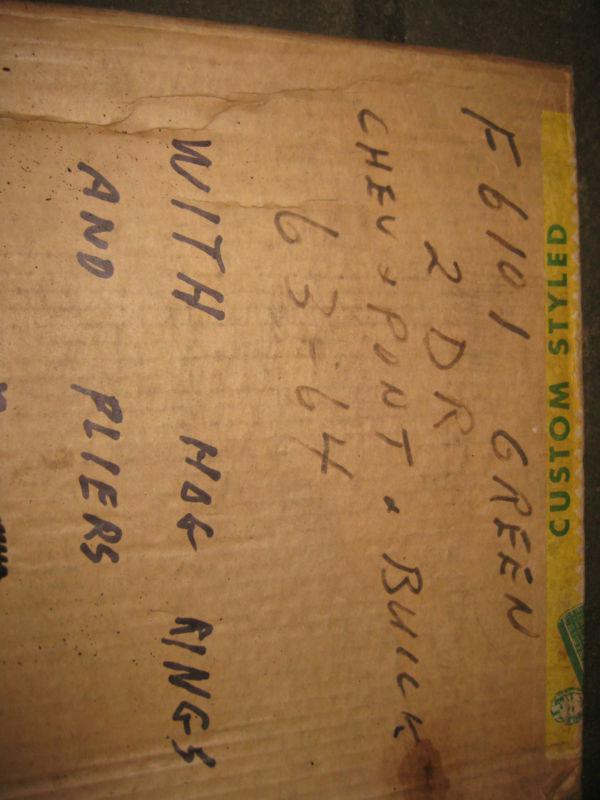 CUSTOM STYLED
F6101 GREEN
2 DR
CHEV & PONT & BUICK
63-64
WITH HOG RINGS
AND PLIERS